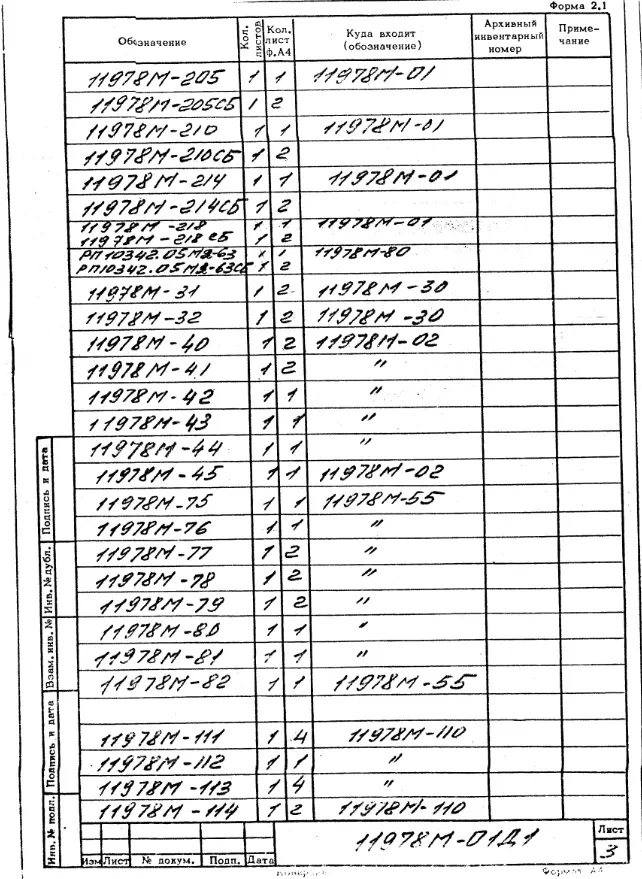 Форма 2.1
Обозначение Кол. листов Кол. лист ф.А4 Куда входит (обозначение) Архивный инвентарный номер Примечание
11978М-205 1 1 11978М-01
11978М-205СБ 1 2
11978М-210 1 1 11978М-01
11978М-210СБ 1 2
11978М-214 1 1 11978М-01
11978М-214СБ 1 2
11978М-218 1 1 11978М-01
11978М-218СБ 1 2
РП10342.05МЯ-63 1 1 11978М-80
РП10342.05МЯ-63СБ 1 2
11978М-31 1 2 11978М-30
11978М-32 1 2 11978М-30
11978М-40 1 2 11978М-02
11978М-41 1 2 "
11978М-42 1 1 "
11978М-43 1 1 "
11978М-44 1 1 "
11978М-45 1 1 11978М-02
11978М-75 1 1 11978М-55
11978М-76 1 1 "
11978М-77 1 2 "
11978М-78 1 2 "
11978М-79 1 2 "
11978М-80 1 1 "
11978М-81 1 1 "
11978М-82 1 1 11978М-55
11978М-111 1 4 11978М-110
11978М-112 1 1 "
11978М-113 1 4 "
11978М-114 1 2 11978М-110
Подпись и дата
Инв. № дубл.
Взам. инв. №
Подпись и дата
Инв. № подл.
Изм Лист № докум. Подп. Дата
11978М-01Д1
Лист
3
Формат А4